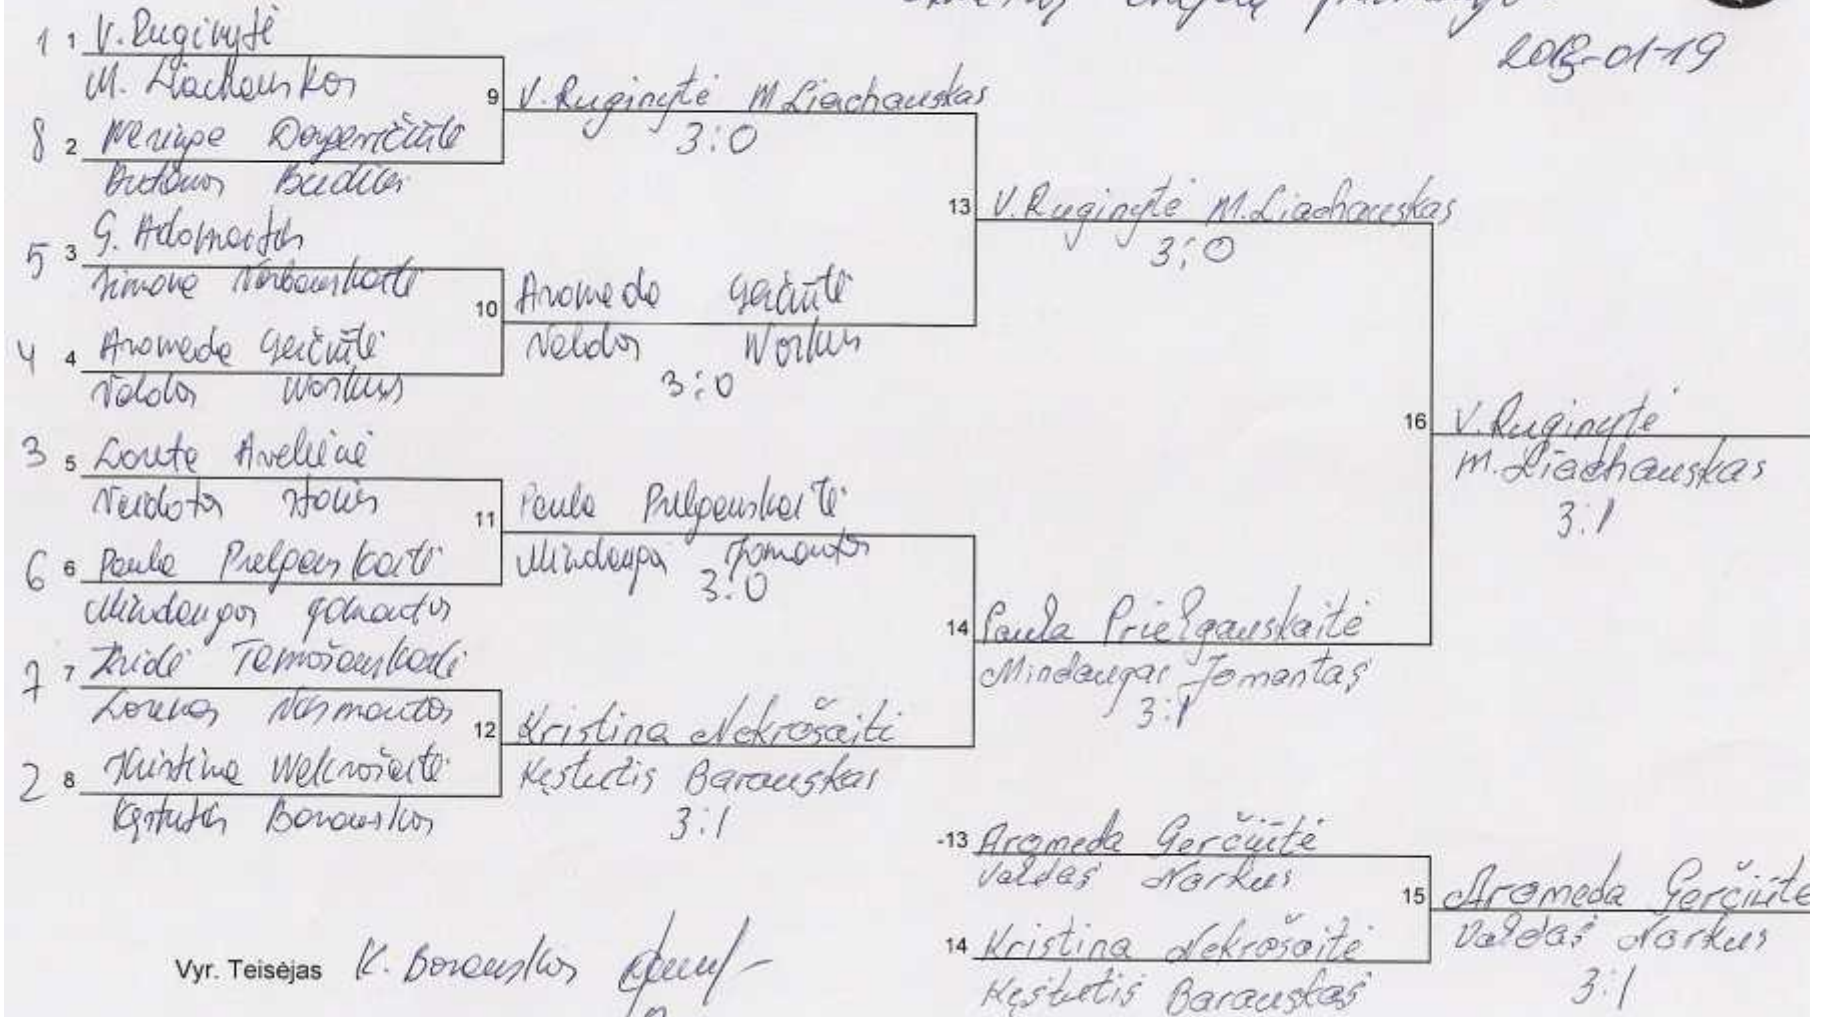 2013-01-19
1 1 V. Ruginytė
M. Liachauskas
8 2 Neringa
Antanas
5 3 G. Adomaitis
Simona Norbauskaitė
4 4 Aromeda Gerčiūtė
Valdas Narkus
3 5 Loreta
6 6 Paula
Mindaugas Jomantas
7 7 Tamošauskaitė
Lorenas Normantas
2 8 Kristina Nekrošaitė
Kęstutis Barauskas
9 V. Ruginytė M Liachauskas
3:0
10 Aromeda Gerčiūtė
Valdas Narkus
3:0
11 Paula
Jomantas
3:0
12 Kristina Nekrošaitė
Kęstutis Barauskas
3:1
13 V. Ruginytė M. Liachauskas
3:0
14 Paula Prielgauskaitė
Mindaugas Jomantas
3:1
16 V. Ruginytė
M. Liachauskas
3:1
-13 Aromeda Gerčiūtė
Valdas Narkus
14 Kristina Nekrošaitė
Kęstutis Barauskas
15 Aromeda Gerčiūtė
Valdas Narkus
3:1
Vyr. Teisėjas K. Barauskas